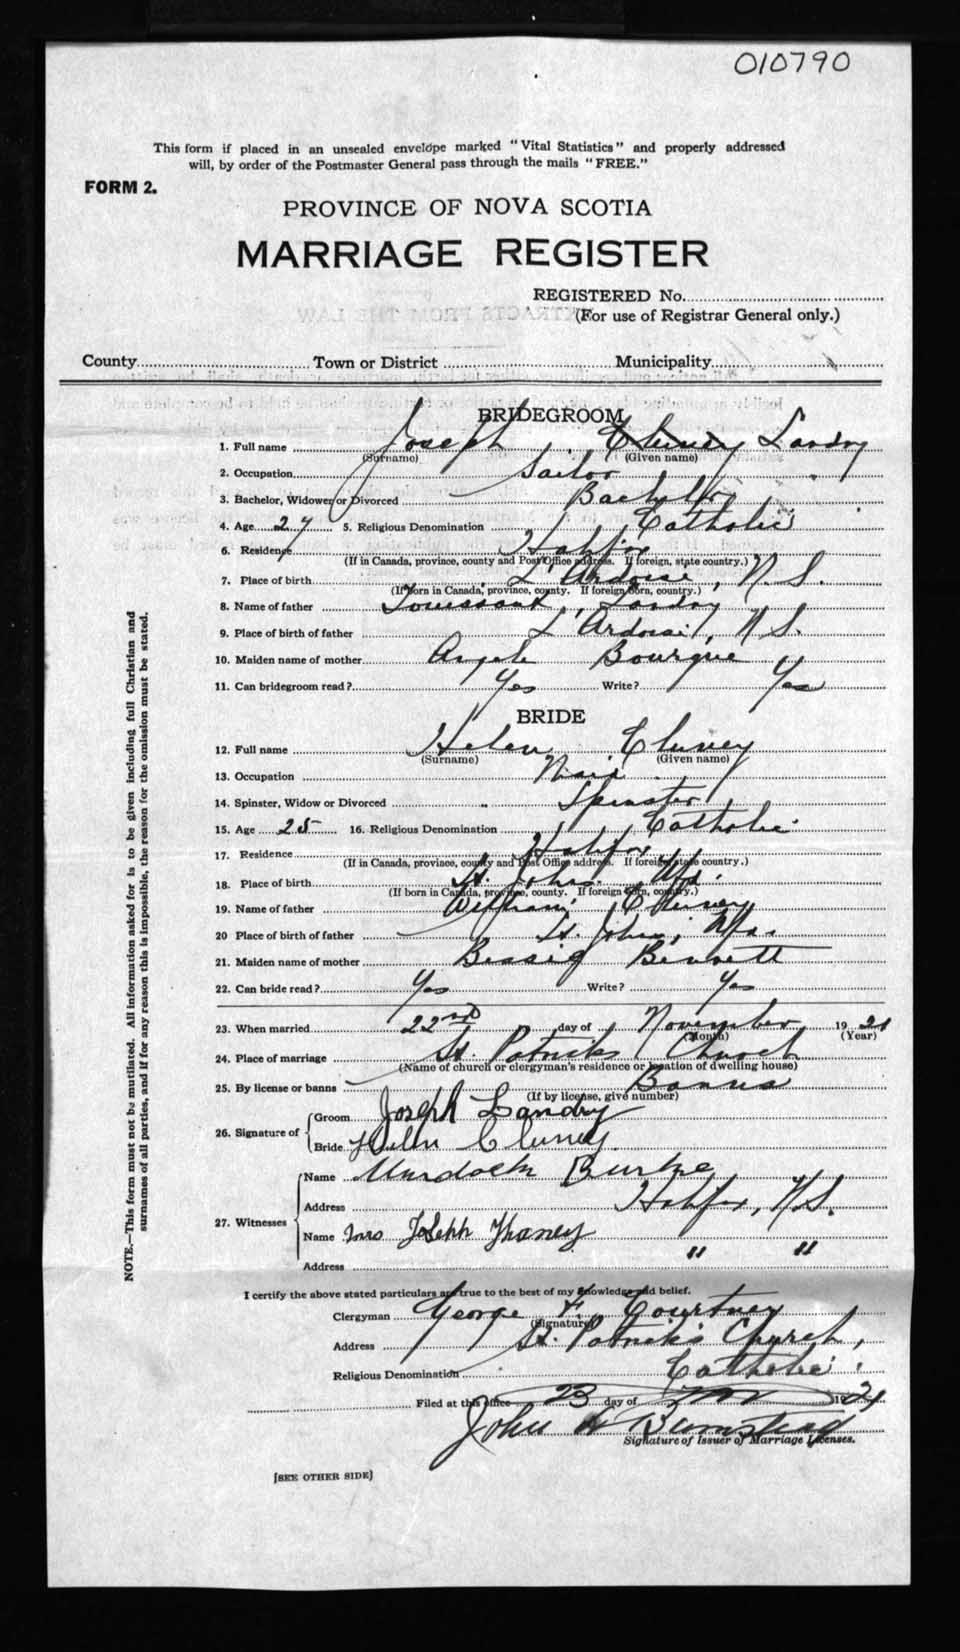 010790
This form if placed in an unsealed envelope marked "Vital Statistics" and properly addressed
will, by order of the Postmaster General pass through the mails "FREE."
FORM 2.
PROVINCE OF NOVA SCOTIA
MARRIAGE REGISTER
REGISTERED No.
(For use of Registrar General only.)
County Town or District Municipality
BRIDEGROOM
1. Full name Joseph Cluney Landry
(Surname) (Given name)
2. Occupation Sailor
3. Bachelor, Widower or Divorced Bachelor
4. Age 27 5. Religious Denomination Catholic
6. Residence Halifax
(If in Canada, province, county and Post Office address. If foreign, state country.)
7. Place of birth L'Ardoise, N.S.
(If born in Canada, province, county. If foreign born, country.)
8. Name of father Toussant Landry
9. Place of birth of father L'Ardoise, N.S.
10. Maiden name of mother Angele Bourque
11. Can bridegroom read? Yes Write? Yes
BRIDE
12. Full name Helen Cluney
(Surname) (Given name)
13. Occupation
14. Spinster, Widow or Divorced Spinster
15. Age 25 16. Religious Denomination Catholic
17. Residence Halifax
(If in Canada, province, county and Post Office address. If foreign state country.)
18. Place of birth St. Johns Nfd.
(If born in Canada, province, county. If foreign born, country.)
19. Name of father William Cluney
20 Place of birth of father St. Johns,
21. Maiden name of mother Bessie Bennett
22. Can bride read? Yes Write? Yes
23. When married 22nd day of November 1921
(Month) (Year)
24. Place of marriage St. Patricks Church
(Name of church or clergyman's residence or location of dwelling house)
25. By license or banns Banns
(If by license, give number)
26. Signature of Groom Joseph Landry
Bride Helen Cluney
27. Witnesses
Name Murdock Burke
Address Halifax, N.S.
Name Mrs Joseph
" "
Address
I certify the above stated particulars are true to the best of my knowledge and belief.
Clergyman George F. Courtney
(Signature)
Address St. Patrick's Church,
Religious Denomination Catholic.
Filed at this office 23 day of Nov 1921
John A Bumstead
Signature of Issuer of Marriage Licenses.
[SEE OTHER SIDE]
NOTE.—This form must not be mutilated. All information asked for is to be given including full Christian and
surnames of all parties, and if for any reason this is impossible, the reason for the omission must be stated.